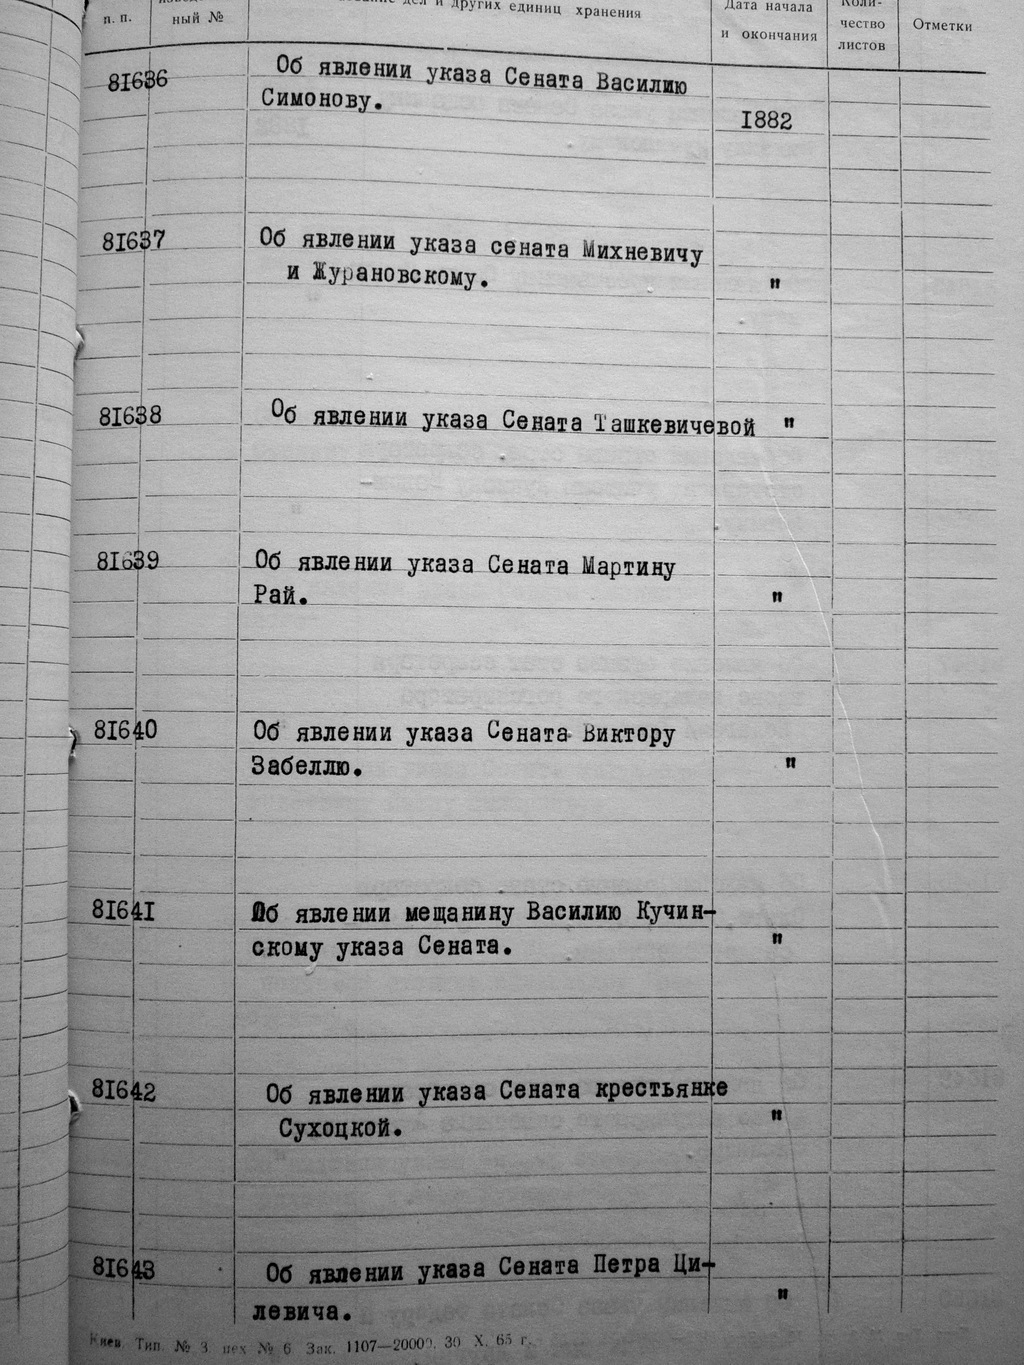 п. п.
ный №
дел и других единиц хранения
Дата начала
и окончания
Коли-
чество
листов
Отметки
81636 Об явлении указа Сената Василию
Симонову.
1882
81637 Об явлении указа сената Михневичу
и Журановскому. "
81638 Об явлении указа Сената Ташкевичевой "
81639 Об явлении указа Сената Мартину
Рай. "
81640 Об явлении указа Сената Виктору
Забеллю. "
81641 Об явлении мещанину Василию Кучин-
скому указа Сената. "
81642 Об явлении указа Сената крестьянке
Сухоцкой. "
81643 Об явлении указа Сената Петра Ци-
левича. "
Киев. Тип. № 3 цех № 6 Зак. 1107—20000. 30 X. 65 г.